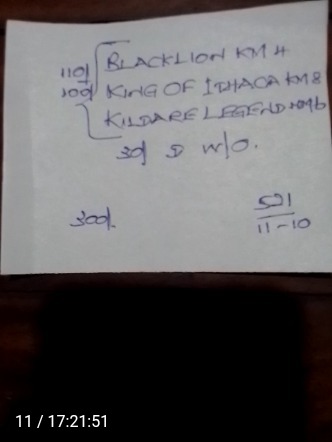 110/ BLACKLION KM 4
100/ KING OF ITHACA KM 8
KILDARE LEGEND KM 6
30/ D W/O.
300/.
521
11-10
11 / 17:21:51